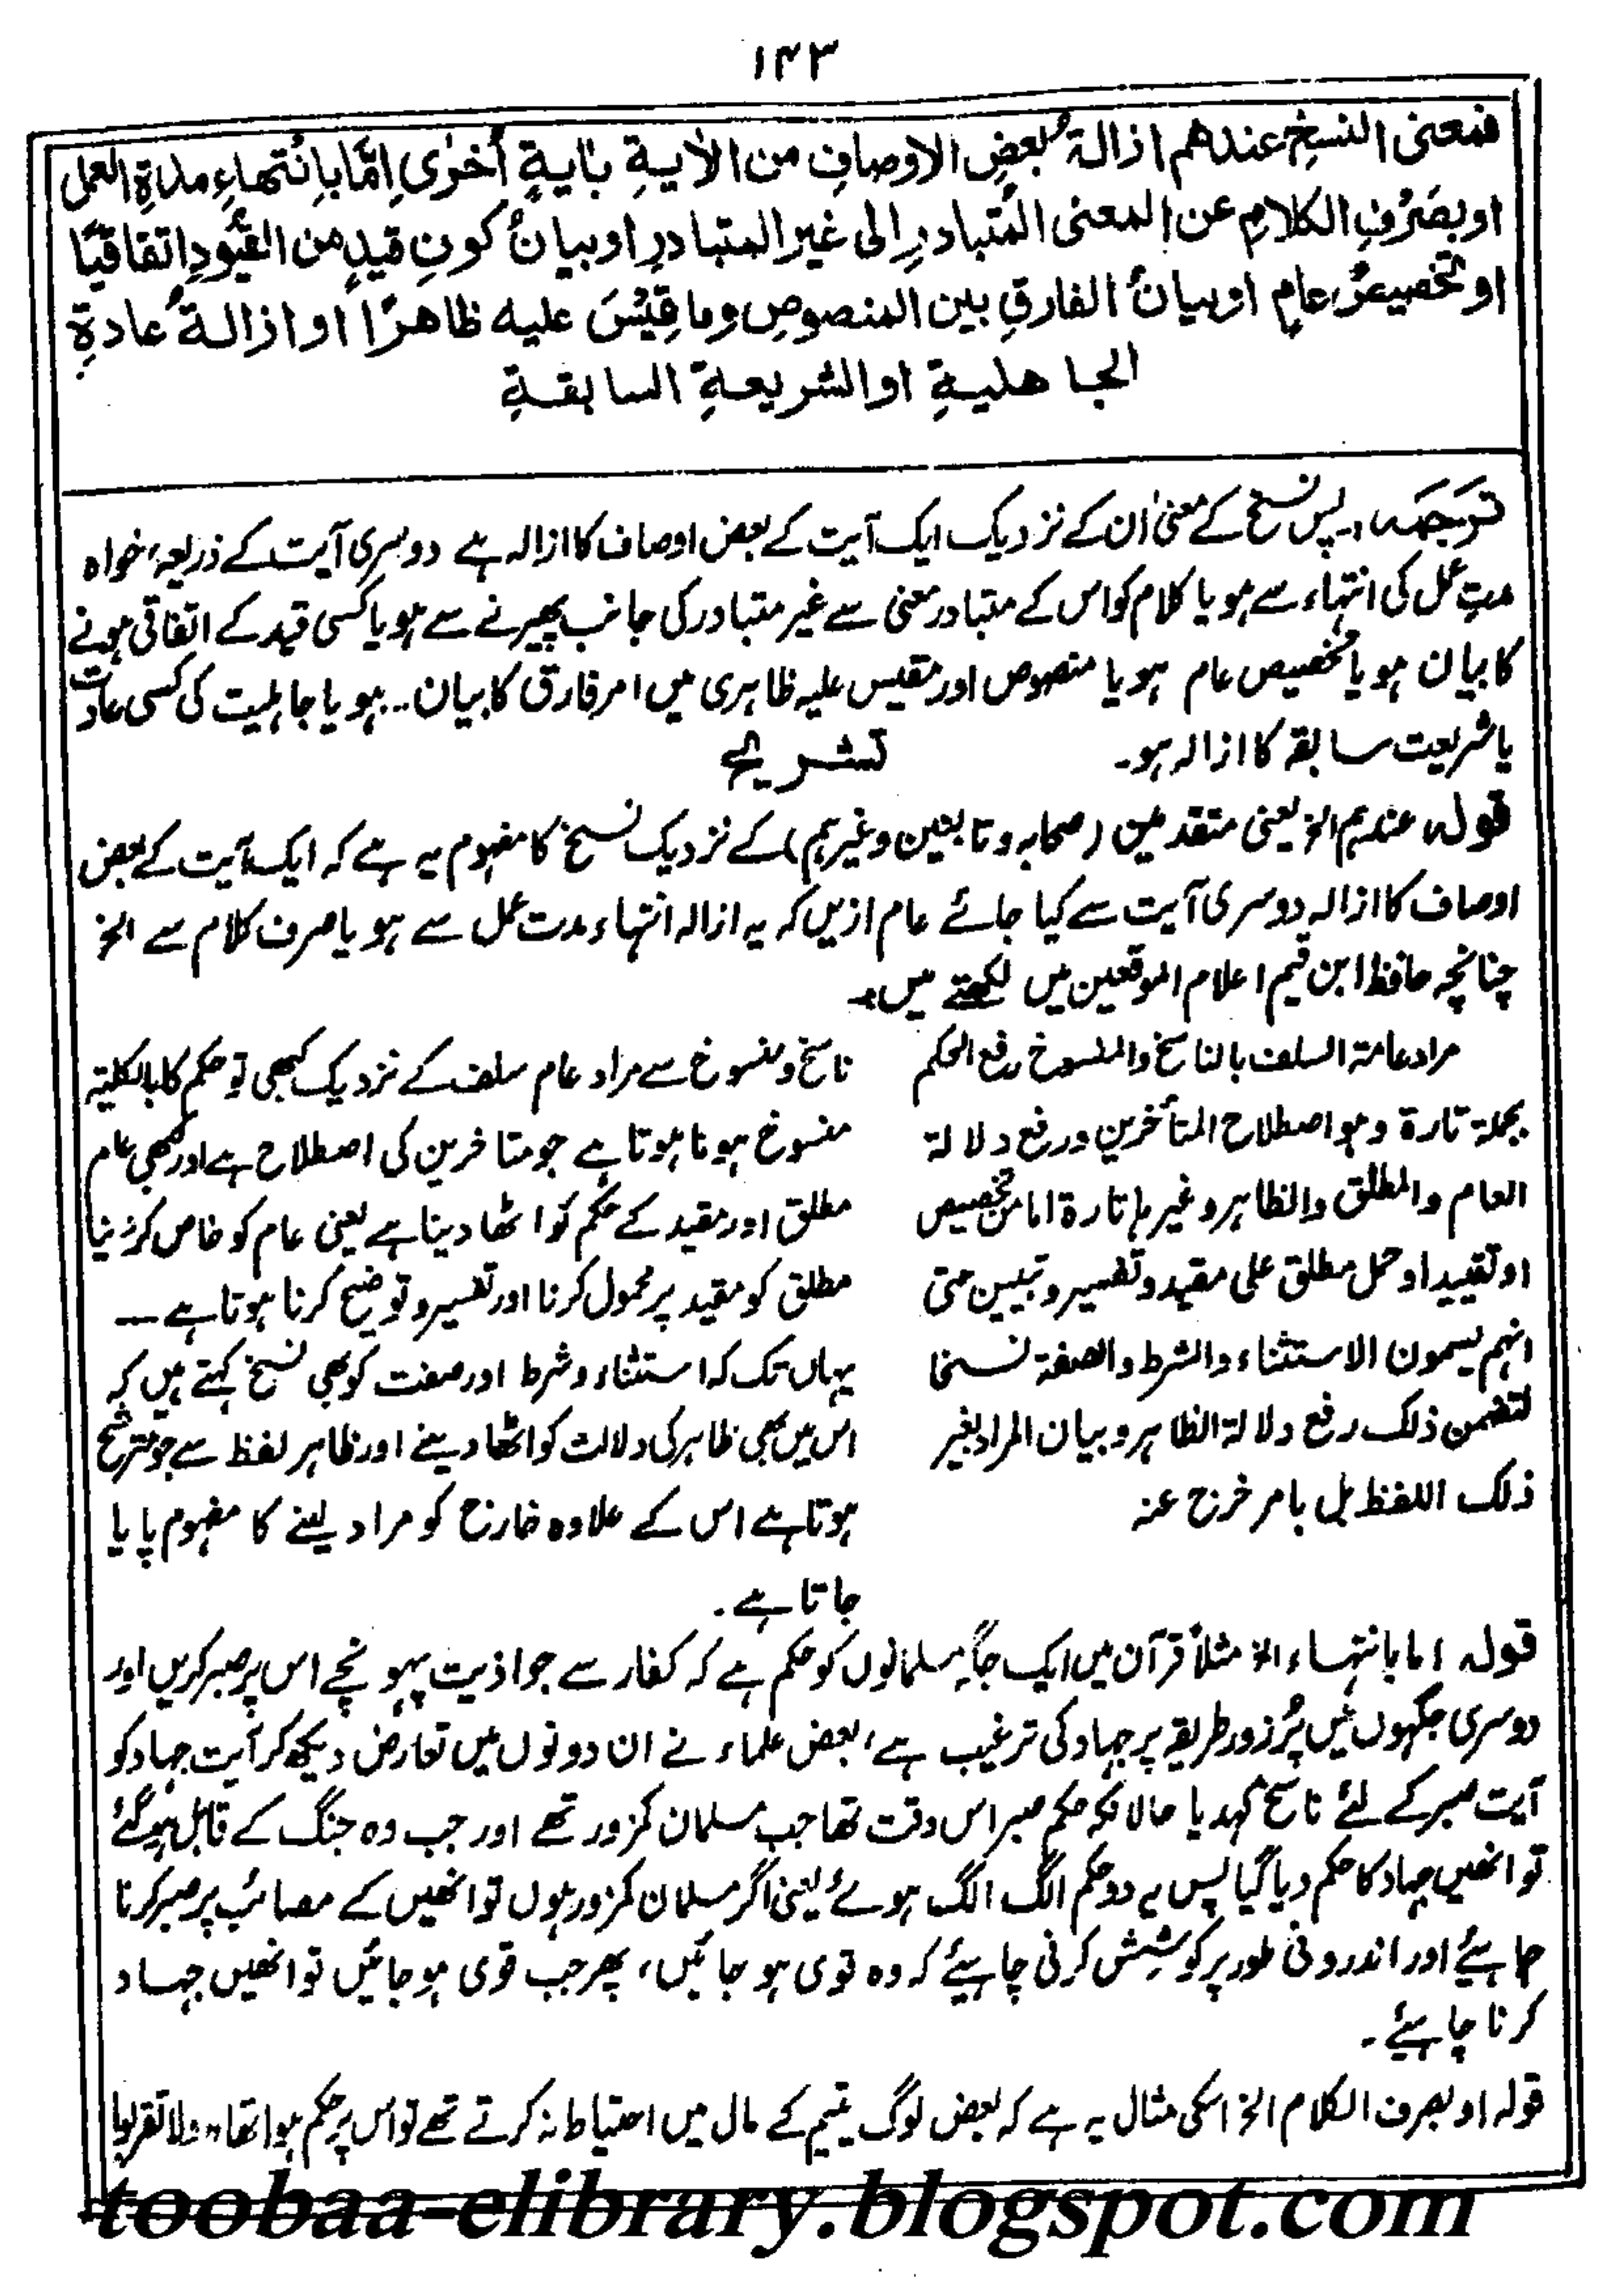 ۱۴۳
فمعنى النسخِ عندهم ازالةُ بعضِ الاوصافِ من الاٰيةِ باٰيةٍ اُخرٰى اِمَّا بِانْتهاءِ مدةِ العمل
او بصَرْفِ الكلامِ عن المعنى المُتبادرِ الى غير المتبادرِ او بيانُ كونِ قيدٍ من القُيُودِ اتفاقيًا
او تخصيصُ عامٍ او بيانُ الفارقِ بين المنصوصِ وما قِيْسَ عليه ظاهرًا او ازالةُ عادةِ
الجاهليةِ او الشريعةِ السابقةِ
ترجمہ: پس نسخ کے معنیٰ ان کے نزدیک ایک آیت کے بعض اوصاف کا ازالہ ہے دوسری آیت کے ذریعہ، خواہ
مدتِ عمل کی انتہاء سے ہو یا کلام کو اس کے متبادر معنیٰ سے غیر متبادر کی جانب پھیرنے سے ہو یا کسی قید کے اتفاقی ہونے
کا بیان ہو یا تخصیص عام ہو یا منصوص اور مقیس علیہ ظاہری میں امر فارق کا بیان .. ہو یا جاہلیت کی کسی عادت
یا شریعت سابقہ کا ازالہ ہو۔
تشریح
قولہ عندہم الخ یعنی متقدمین (صحابہ و تابعین وغیرہم) کے نزدیک نسخ کا مفہوم یہ ہے کہ ایک آیت کے بعض
اوصاف کا ازالہ دوسری آیت سے کیا جائے عام ازیں کہ یہ ازالہ انتہاء مدت عمل سے ہو یا صرف کلام سے الخ
چنانچہ حافظ ابن قیم اعلام الموقعین میں لکھتے ہیں:۔
مراد عامۃ السلف بالناسخ والمنسوخ رفع الحکم
بجملۃ تارۃ وہو اصطلاح المتأخرین ورفع دلالۃ
العام والمطلق والظاہر وغیرہا تارۃ اما من تخصیص
او تقیید او حمل مطلق علی مقید وتفسیر وتبیین حتی
انہم یسمون الاستثناء والشرط والصفۃ نسخا
لتضمن ذلک رفع دلالۃ الظاہر وبیان المراد بغیر
ذلک اللفظ بل بامر خرج عنہ
ناسخ و منسوخ سے مراد عام سلف کے نزدیک کبھی تو حکم کا بالکلیۃ
منسوخ ہونا ہوتا ہے جو متاخرین کی اصطلاح ہے اور کبھی عام
مطلق اور مقید کے حکم کو اٹھا دینا ہے یعنی عام کو خاص کر دینا
مطلق کو مقید پر محمول کرنا اور تفسیر و توضیح کرنا ہوتا ہے ---
یہاں تک کہ استثناء و شرط اور صفت کو بھی نسخ کہتے ہیں کہ
اس میں بھی ظاہر کی دلالت کو اٹھا دینے اور ظاہر لفظ سے جو مترشح
ہوتا ہے اس کے علاوہ خارج کو مراد لینے کا مفہوم پایا
جاتا ہے۔
قولہ اما بانتہاء الخ مثلاً قرآن میں ایک جگہ مسلمانوں کو حکم ہے کہ کفار سے جو اذیت پہونچے اس پر صبر کریں اور
دوسری جگہوں میں پُر زور طریقہ پر جہاد کی ترغیب ہے، بعض علماء نے ان دونوں میں تعارض دیکھ کر آیت جہاد کو
آیت صبر کے لئے ناسخ کہدیا حالانکہ حکم صبر اس وقت تھا جب مسلمان کمزور تھے اور جب وہ جنگ کے قابل ہو گئے
تو انھیں جہاد کا حکم دیا گیا پس یہ دو حکم الگ الگ ہوئے یعنی اگر مسلمان کمزور ہوں تو انھیں کے مصائب پر صبر کرنا
چاہئے اور اندرونی طور پر کوشش کرنی چاہیئے کہ وہ قوی ہو جائیں، پھر جب قوی ہو جائیں تو انھیں جہاد
کرنا چاہیئے۔
قولہ او بصرف الکلام الخ اسکی مثال یہ ہے کہ بعض لوگ یتیم کے مال میں احتیاط نہ کرتے تھے تو اس پر حکم ہوا تھا "ولا تقربوا
toobaa-elibrary.blogspot.com